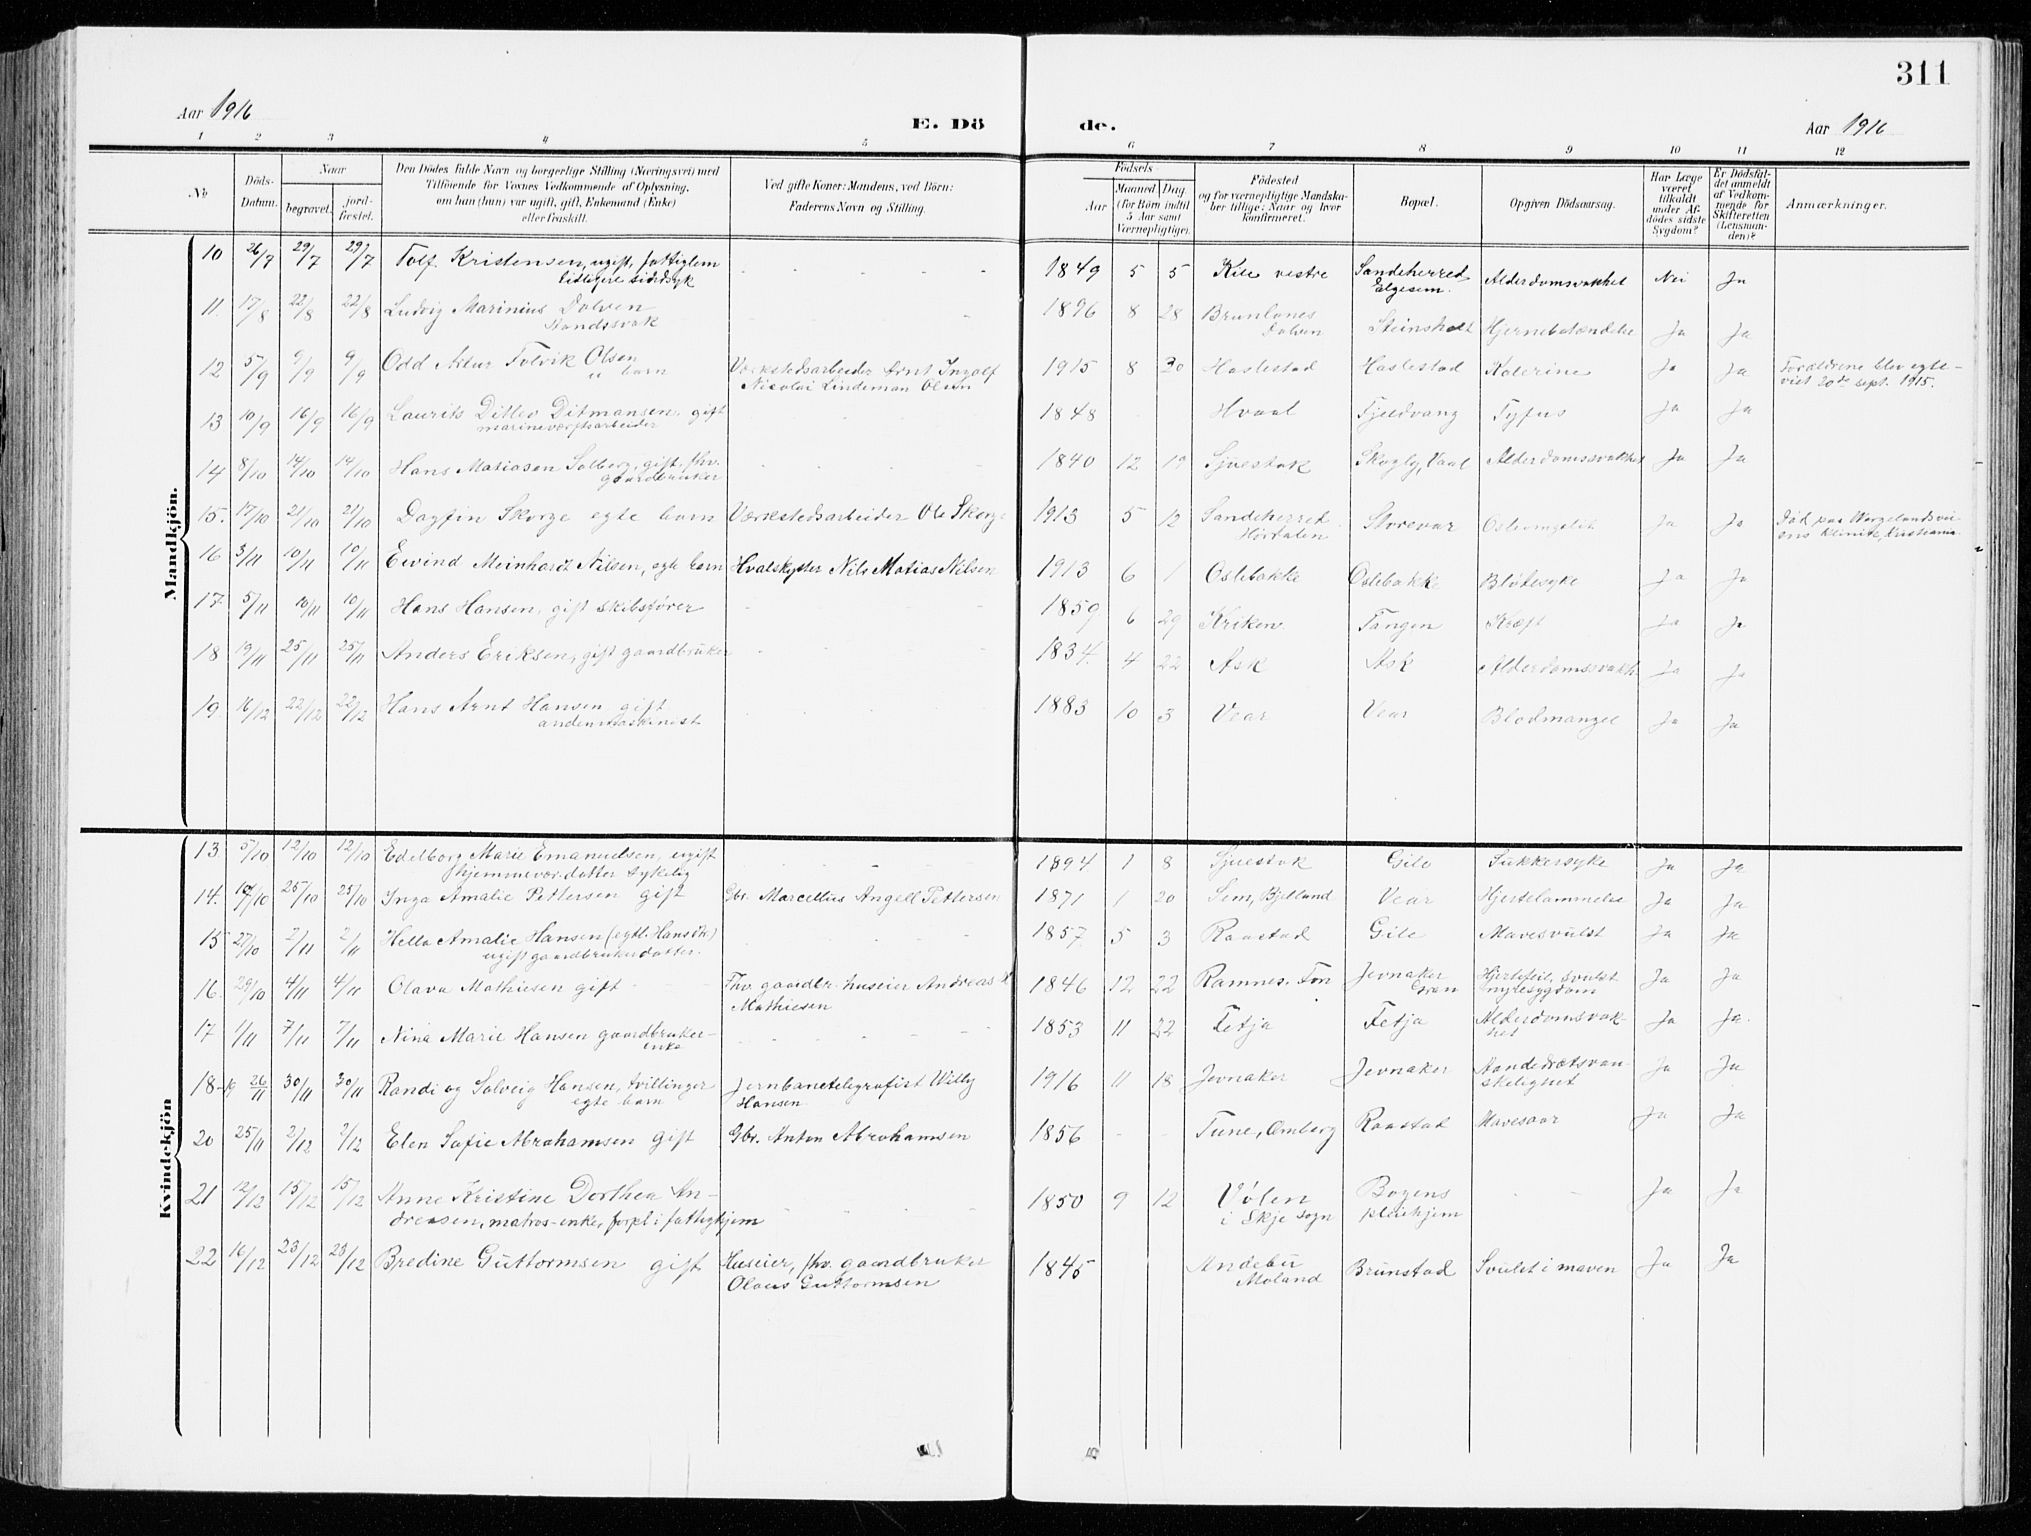 311
Aar 1916
E. Döde.
Aar 1916
1 2 3 4 5 6 7 8 9 10 11 12
No
Döds-Datum.
Naar
begravet.
jord-fæstet.
Den Dödes fulde Navn og borgerlige Stilling (Næringsvei) med
Tilföiende for Voxnes Vedkommende af Oplysning,
om han (hun) var ugift, gift, Enkemand (Enke)
eller fraskilt.
Ved gifte Koner: Mandens, ved Börn:
Faderens Navn og Stilling.
Födsels
Aar
Maaned. Dag.
(for Börn indtil
5 Aar samt
Værnepligtige).
Födested
og for værnepligtige Mandska-
ber tillige: Naar og hvor
konfirmeret.
Bopæl.
Opgiven Dödsaarsag.
Har Læge
været
tilkaldt
under Af-
dödes sidste
Sygdom?
Er Dödsfal-
det anmeldt
af Vedkom-
mende for
Skifteretten
(Lensman-
den)?
Anmærkninger.
Mandkjön.
10 26/7 29/7 29/7 Tolf Kristensen, ugift, fattiglem 1849 5 5 Kile vestre Sandeherred Alderdomsvakhet Nei Ja
tidligere sindssyk Elgesem.
11. 17/8 22/8 22/8 Ludvig Marinius Dolven 1896 8 28 Brunlanes Steinsholt Hjernebetændelse Ja Ja
Aandssvak Dolven
12 5/9 9/9 9/9 Odd Artur Tolvik Olsen Værkstedsarbeider Arnt Ingolf 1915 8 30 Haslestad Haslestad Kolerine Ja Ja Forældrene blev egte-
u barn Nicolai Lindeman Olsen viet 20de sept. 1915.
13 10/9 16/9 16/9 Laurits Ditlev Ditmansen, gift 1848 Hvaal Fjeldvang Tyfus Ja Ja
marineværftsarbeider
14 8/10 14/10 14/10 Hans Matiasen Solberg, gift, fhv. 1840 12 19 Sjuestok Skogly, Vaal Alderdomssvakhet Ja Ja
gaardbruker
15. 17/10 21/10 21/10 Dagfin Skorge egte barn Værkstedsarbeider Ole Skorge 1913 5 12 Sandeherred Storevar Ja Ja Död paa Wergelandsvei-
Hortalen ens klinik, Kristiania
16 3/11 10/11 10/11 Eivind Meinhardt Nilsen, egte barn Hvalskytter Nils Matias Nilsen 1913 6 1 Oslebakke Oslebakke Blötesyke Ja Ja
17. 5/11 10/11 10/11 Hans Hansen, gift skibsfører 1859 6 29 Kriken Tangen Kræft Ja Ja
18 19/11 25/11 25/11 Anders Eriksen, gift gaardbruker 1834. 4 22 Ask Ask Alderdomssvakh. Ja Ja
19 16/12 22/12 22/12 Hans Arnt Hansen gift 1883 10 3 Vear Vear Blodmangel Ja Ja
andenmaskinist
Kvindekjön
13. 5/10 12/10 12/10 Edelborg Marie Emanuelsen, ugift 1894 1 8 Sjuestok Gile Sukkersyke Ja Ja
hjemmevær. datter sykelig
14. 19/10 25/10 25/10 Inga Amalie Pettersen gift Gbr. Marcellus Angell Pettersen 1871 1 20 Sem, Bjelland Vear Hjertelammelse Ja Ja
15 27/10 2/11 2/11 Hella Amalie Hansen (egtl. Hansdtr.) 1857. 5 3 Raastad Gile Mavesvulst Ja Ja
ugift gaardbrukerdatter.
16. 29/10 4/11 4/11 Olava Mathiesen gift Fhv. gaardbr. huseier Andreas 1846 12 22 Ramnes. Fon Jevnaker Hjertefeil, svulst Ja Ja
Mathiesen Gran nyresygdom
17 1/11 7/11 7/11 Nina Marie Hansen gaardbruker- 1853 11 22 Fetja Fetja Alderdomsvak- Ja Ja.
enke het
18-19 26/11 30/11 30/11 Randi og Solveig Hansen, tvillinger Jernbanetelegrafist Willy 1916 11 18 Jevnaker Jevnaker Aandedrætsvan- Ja Ja
egte barn Hansen. skelighet
20 25/11 2/12 2/12 Elen Sofie Abrahamsen gift Gbr. Anton Abrahamsen 1856 - - Tune, Omberg Raastad Mavesaar Ja Ja
21 12/12 15/12 15/12 Anne Kristine Dorthea An- 1850 9 12 Vølen Bogens Ja Ja
dreasen, matros-enke, forpl. i fattighjem i Skje sogn pleiehjem
22 16/12 23/12 23/12 Bredine Guttormsen gift Huseier, fhv. gaardbruker 1845 Andebu Brunstad Svulst i maven Ja Ja
Olaus Guttormsen Moland